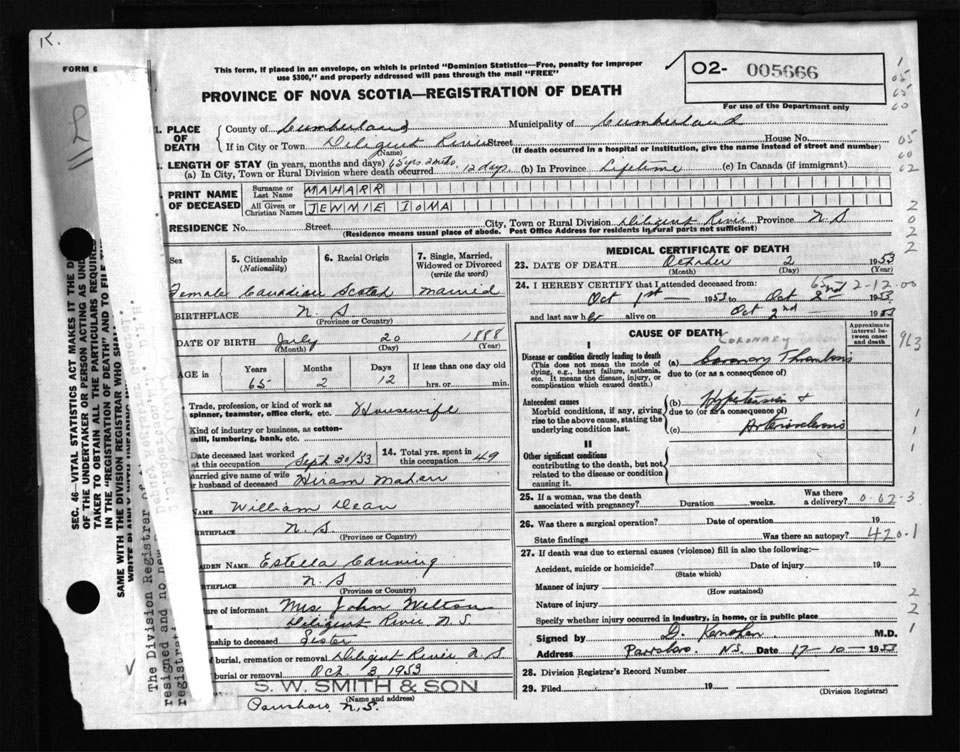 K.
FORM 6
This form, if placed in an envelope, on which is printed "Dominion Statistics—Free, penalty for improper
use $300," and properly addressed will pass through the mail "FREE"
PROVINCE OF NOVA SCOTIA—REGISTRATION OF DEATH
O2- 005666
For use of the Department only
1. PLACE OF DEATH
County of Cumberland Municipality of Cumberland
If in City or Town Diligent River Street House No.
(Name) (If death occurred in a hospital or institution, give the name instead of street and number)
LENGTH OF STAY (in years, months and days) 65 yrs 2 mths
(a) In City, Town or Rural Division where death occurred 12 days. (b) In Province Lifetime (c) In Canada (if immigrant)
PRINT NAME OF DECEASED
Surname or Last Name MAHARR
All Given or Christian Names JENNIE IOMA
RESIDENCE No. Street City, Town or Rural Division Diligent River Province N.S
(Residence means usual place of abode. Post Office Address for residents in rural parts not sufficient)
Sex Female
5. Citizenship (Nationality) Canadian
6. Racial Origin Scotch
7. Single, Married, Widowed or Divorced (write the word) Married
BIRTHPLACE N.S
(Province or Country)
DATE OF BIRTH July 20 1888
(Month) (Day) (Year)
AGE in Years Months Days If less than one day old
65 2 12 hrs. or min.
Trade, profession, or kind of work as spinner, teamster, office clerk, etc. Housewife
Kind of industry or business, as cotton-mill, lumbering, bank, etc.
Date deceased last worked at this occupation Sept 30/53
14. Total yrs. spent in this occupation 49
married give name of wife or husband of deceased Hiram Maharr
NAME William Dean
BIRTHPLACE N.S
(Province or Country)
MAIDEN NAME Estella Canning
BIRTHPLACE N.S
(Province or Country)
nature of informant Mrs John Welton
Diligent River N.S.
ship to deceased Sister
burial, cremation or removal Diligent River N.S
burial or removal Oct 3 1953
S. W. SMITH & SON
(Name and address)
Parrsboro, N.S.
MEDICAL CERTIFICATE OF DEATH
23. DATE OF DEATH October 2 1953
(Month) (Day) (Year)
24. I HEREBY CERTIFY that I attended deceased from:
Oct 1st 1953 to Oct 1953
and last saw her alive on Oct 2nd 1953
CAUSE OF DEATH
Approximate interval between onset and death
CORONARY
I
Disease or condition directly leading to death (a) Coronary Thrombosis
(This does not mean the mode of dying, e.g., heart failure, asthenia, etc. It means the disease, injury, or complication which caused death.)
due to (or as a consequence of)
Antecedent causes (b) Hypertension &
Morbid conditions, if any, giving rise to the above cause, stating the underlying condition last.
due to (or as a consequence of)
(c) Arteriosclerosis
II
Other significant conditions
contributing to the death, but not related to the Disease or condition causing it.
25. If a woman, was the death associated with pregnancy? Duration weeks. Was there a delivery? 0-62-3
26. Was there a surgical operation? Date of operation 19
State findings Was there an autopsy? 420.1
27. If death was due to external causes (violence) fill in also the following:—
Accident, suicide or homicide? Date of injury 19
(State which)
Manner of injury
(How sustained)
Nature of injury
Specify whether injury occurred in industry, in home, or in public place
Signed by M.D.
Address Parrsboro N.S. Date 17-10-1953
28. Division Registrar's Record Number
29. Filed 19
(Division Registrar)
SEC. 46—VITAL STATISTICS ACT MAKES IT THE D
OF THE UNDERTAKER OR PERSON ACTING AS UND
TAKER TO OBTAIN ALL THE PARTICULARS REQUIRE
IN THE "REGISTRATION OF DEATH" AND TO FILE TH
SAME WITH THE DIVISION REGISTRAR WHO SHA
The Division Registrar of
resigned and no new